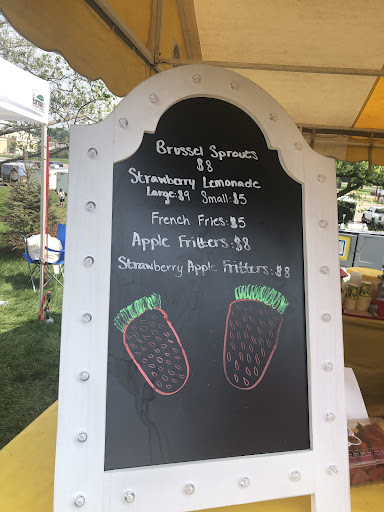 Brussel Sprouts
$8
Strawberry Lemonade
Large:$9 Small:$5
French Fries:$5
Apple Fritters:$8
Strawberry Apple Fritters:$8